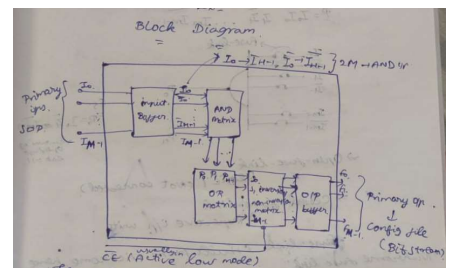 Block Diagram
I₀ → I_M-1, I̅₀ → I̅_M-1 } 2M → AND i/p
Primary
ips.
SOP
I₀
I_M-1
input
Buffer
I₀
I̅₀
I̅_M-1
I_M-1
AND
matrix
P₀ P₁ P_M-1
OR
matrix
matrix
O/P
buffer
F₀
F₁
F_M-1
Primary op.
↓
Config file
(Bit stream)
CE (Active low mode)